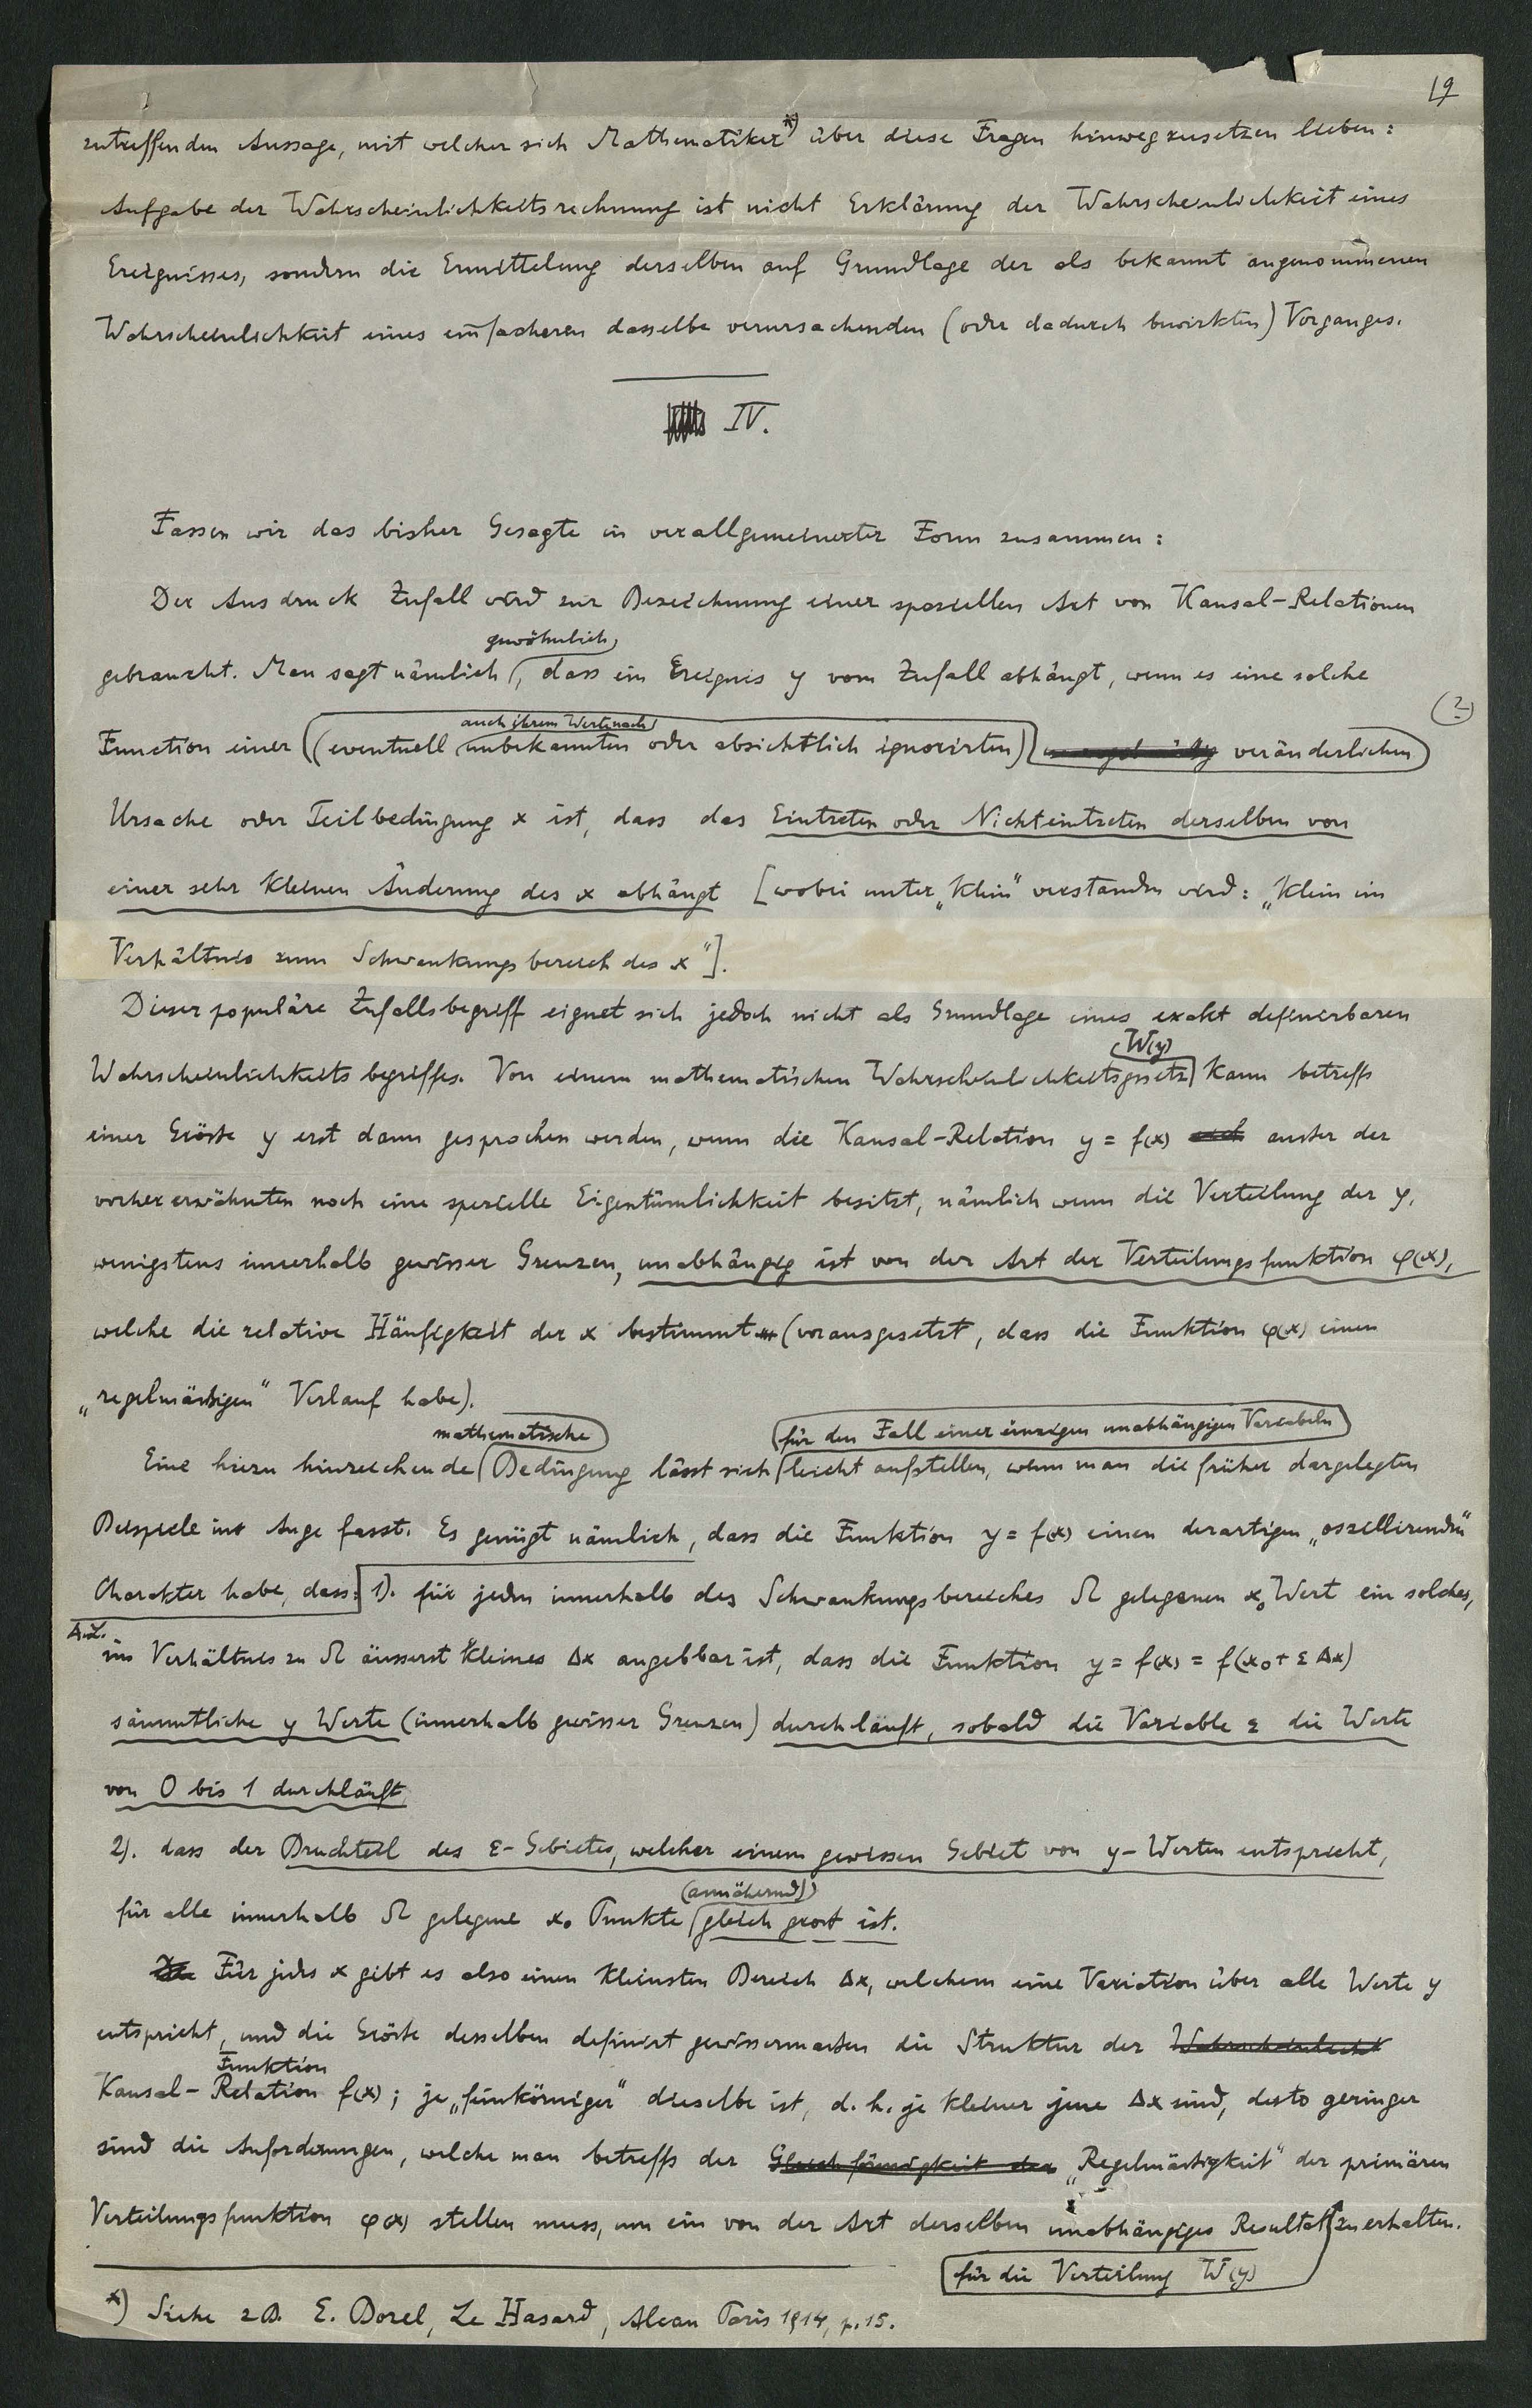 19
zutreffenden Aussage, mit welcher sich Mathematiker *) über diese Fragen hinwegzusetzen lieben:
Aufgabe der Wahrscheinlichkeitsrechnung ist nicht Erklärung der Wahrscheinlichkeit eines
Ereignisses, sondern die Ermittelung derselben auf Grundlage der als bekannt angenommenen
Wahrscheinlichkeit eines einfacheren dasselbe verursachenden (oder dadurch bewirkten) Vorganges.
IV.
Fassen wir das bisher Gesagte in verallgemeinerter Form zusammen:
Der Ausdruck Zufall wird zur Bezeichnung einer speziellen Art von Kausal-Relationen
gewöhnlich
gebraucht. Man sagt nämlich, dass ein Ereignis y vom Zufall abhängt, wenn es eine solche
(2)
auch ihrem Werte nach
Function einer (eventuell unbekannten oder absichtlich ignorirten) veränderlichen
Ursache oder Teilbedingung x ist, dass das Eintreten oder Nichteintreten derselben von
einer sehr kleinen Änderung des x abhängt [wobei unter „klein" verstanden wird: „klein im
Verhältnis zum Schwankungsbereich des x"].
Dieser populäre Zufallsbegriff eignet sich jedoch nicht als Grundlage eines exakt definierbaren
W(y)
Wahrscheinlichkeitsbegriffes. Von einem mathematischen Wahrscheinlichkeitsgesetz kann betreffs
einer Grösse y erst dann gesprochen werden, wenn die Kausal-Relation y = f(x) ausser der
vorher erwähnten noch eine spezielle Eigentümlichkeit besitzt, nämlich wenn die Verteilung der y,
wenigstens innerhalb gewisser Grenzen, unabhängig ist von der Art der Verteilungsfunktion φ(x),
welche die relative Häufigkeit der x bestimmt (vorausgesetzt, dass die Funktion φ(x) einen
„regelmässigen" Verlauf habe).
mathematische für den Fall einer einzigen unabhängigen Variabeln
Eine hiezu hinreichende Bedingung lässt sich leicht aufstellen, wenn man die früher dargelegten
Beispiele ins Auge fasst. Es genügt nämlich, dass die Funktion y = f(x) einen derartigen „oszillirenden"
Charakter habe, dass: 1). für jeden innerhalb des Schwankungsbereiches Ω gelegenen x₀ Wert ein solches,
A.L.
im Verhältnis zu Ω äusserst kleines Δx angebbar ist, dass die Funktion y = f(x) = f(x₀ + ε Δx)
sämmtliche y Werte (innerhalb gewisser Grenzen) durchläuft, sobald die Variable ε die Werte
von 0 bis 1 durchläuft
2). dass der Bruchteil des ε-Gebietes, welcher einem gewissen Gebiet von y-Werten entspricht,
(annähernd)
für alle innerhalb Ω gelegene x₀ Punkte gleich gross ist.
Für jedes x gibt es also einen kleinsten Bereich Δx, welchem eine Variation über alle Werte y
entspricht, und die Grösse desselben definirt gewissermassen die Struktur der Wahrscheinlichk
Funktion
Kausal-Relation f(x); je „feinkörniger" dieselbe ist, d. h. je kleiner jene Δx sind, desto geringer
sind die Anforderungen, welche man betreffs der Gleichförmigkeit der „Regelmässigkeit" der primären
Verteilungsfunktion φ(x) stellen muss, um ein von der Art derselben unabhängiges Resultat zu erhalten.
für die Verteilung W(y)
*) Siehe z.B. E. Borel, Le Hasard, Alcan Paris 1914, p. 15.